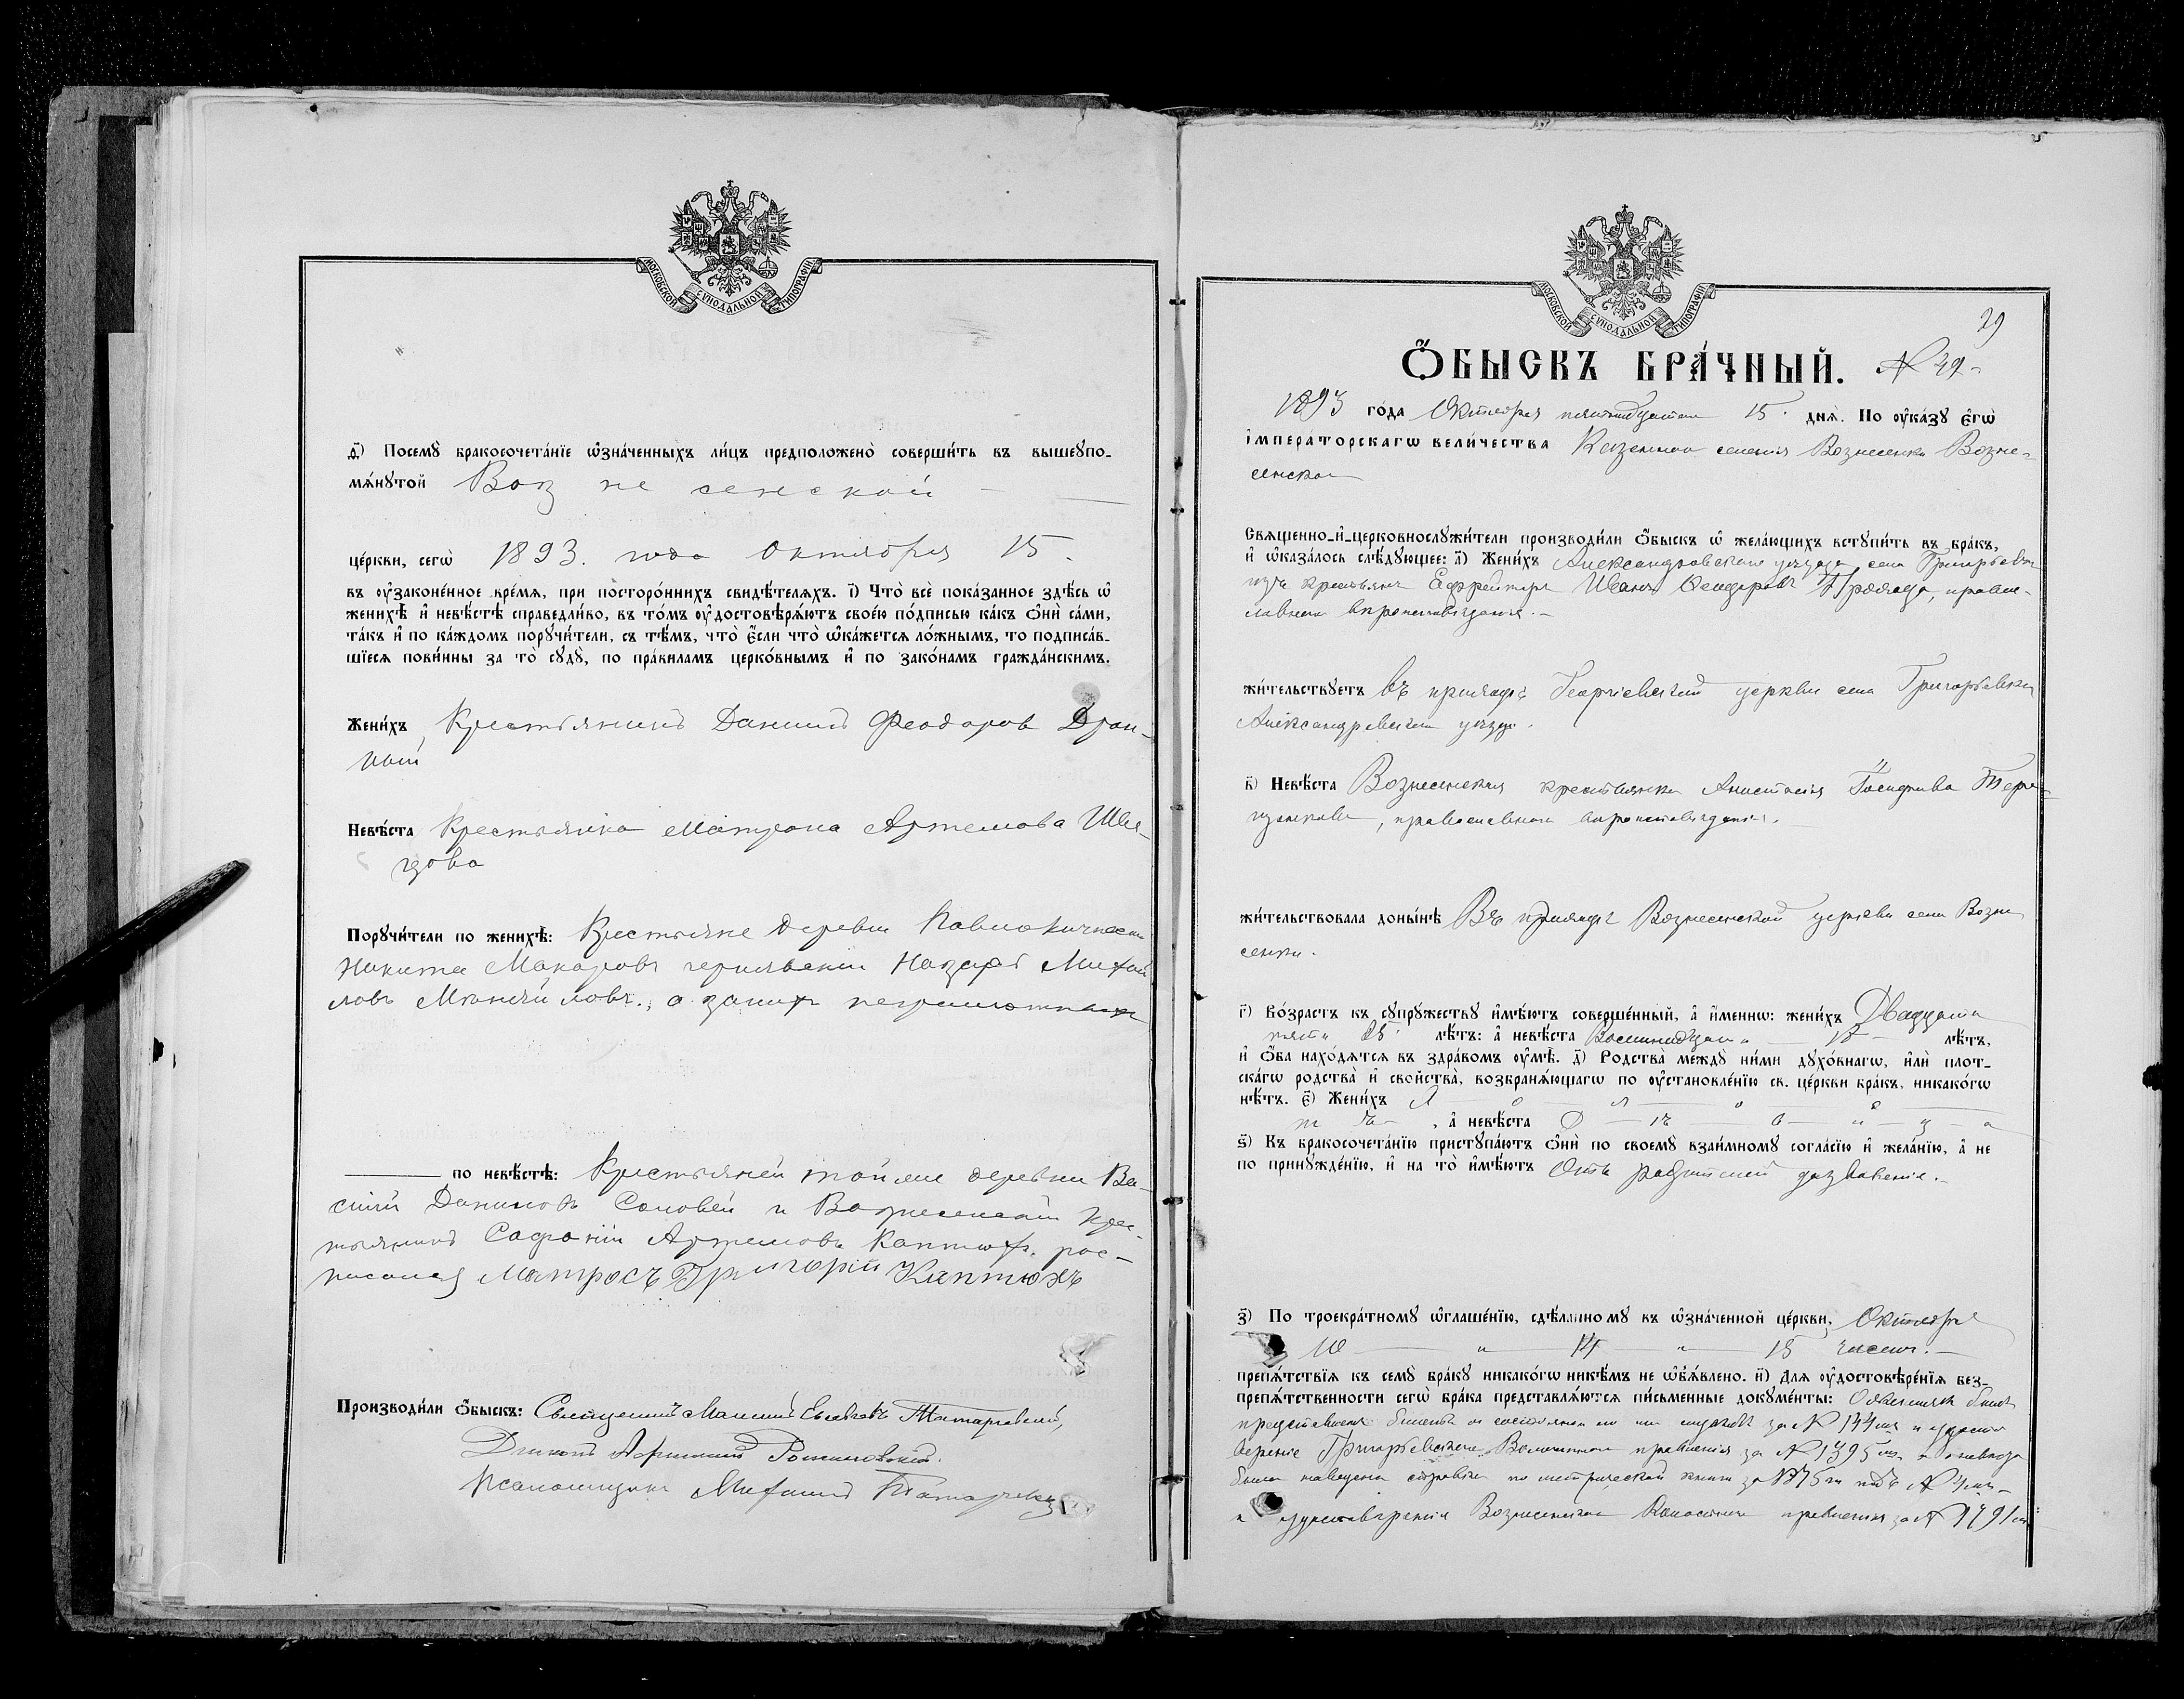 МОСКОВСКОЙ СУНОДАЛЬНОЙ ТИПОГРАФІИ
д҃) Посемꙋ̀ бракосочета́нїе ѡ҆зна́ченныхъ ли́цъ предположено̀ соверши́ть въ вышеꙋпо-
мѧ́нꙋтой Воз не сенской
це́ркви, сегѡ̀ 1893. года Октября 15.
въ ᲂу҆зако́ненное вре́мѧ, при посторо́ннихъ свидѣ́телѧхъ. і҃) Что̀ всѐ пока́занное здѣ́сь ѡ҆
женихѣ̀ и҆ невѣ́стѣ справедли́во, въ то́мъ ᲂу҆достовѣрѧ́ютъ свое́ю по́дписью ка́къ ѻ҆нѝ са́ми,
та́къ и҆ по ка́ждомъ порꙋчи́тели, съ тѣ́мъ, что̀ є҆́сли что̀ ѡ҆ка́жетсѧ ло́жнымъ, то подписа́в-
шїесѧ пови́нны за то̀ сꙋдꙋ̀, по пра́виламъ церко́внымъ и҆ по зако́намъ гражда́нскимъ.
Жени́хъ Крестьянинъ Даниилъ Феодоров Дран-
ный
Невѣ́ста Крестьянка Матрона Артемова Шве-
цова
Порꙋчи́тели по женихѣ̀: Крестьяне деревни
Никита Макаровъ Назарій Михай
ловъ а за нихъ неграмотныхъ
по невѣ́стѣ: Крестьяне той же деревни Ва-
силій Данилов Соловей и Вознесенскій крес-
тьянинъ Софроній Артемовъ Каптюх, рос-
писался Матросъ Григорій Каптюхъ
Производи́ли ѻ҆́быскъ: Священникъ Татаровскій,
Діаконъ
Псаломщикъ Михаилъ
МОСКОВСКОЙ СУНОДАЛЬНОЙ ТИПОГРАФІИ
29
Ѻ҆́БЫСКЪ БРА́ЧНЫЙ. № 29
1893 го́да Октября пятнадцатаго 15. днѧ̀. По ᲂу҆ка́зꙋ є҆гѡ̀
і҆мпера́торскагѡ вели́чества Казеннаго селенія Вознесенки Возне-
сенской
Свѧщенно-и҆-церковнослꙋжи́тели производи́ли ѻ҆́быскъ ѡ҆ жела́ющихъ встꙋпи́ть въ бра́къ,
и҆ ѡ҆каза́лось слѣ́дꙋющее: а҃) Жени́хъ Александровскаго уѣзда села Григорьевки
изъ крестьянъ Ефрейторъ Иванъ Феодоровъ православ-
наго вѣроисповѣданія.
жи́тельствꙋетъ въ приходѣ Георгіевской церкви села Григорьевки
Александровскаго уѣзда.
в҃) Невѣ́ста Вознесенская крестьянка Анастасія Іосифова
православнаго вѣроисповѣданія.
жи́тельствовала доны́нѣ Въ приходѣ Вознесенской церкви села Возне
сенки.
г҃) Во́зрастъ къ сꙋпрꙋ́жествꙋ и҆мѣ́ютъ соверше́нный, а҆ и҆́меннѡ: жени́хъ Двадцати
пяти 25 лѣ́тъ: а҆ невѣ́ста Восемнадцати 18 лѣ́тъ,
и҆ ѻ҆́ба нахо́дѧтсѧ въ здра́вомъ ᲂу҆мѣ̀. д҃) Родства̀ междꙋ̀ ни́ми дꙋхо́внагѡ, и҆лѝ плот-
ска́гѡ родства̀ и҆ свойства̀, возбранѧ́ющагѡ по ᲂу҆становле́нїю св. це́ркви бра́къ, никако́гѡ
нѣ́тъ. є҃) Жени́хъ
а҆ невѣ́ста
ѕ҃) Къ бракосочета́нїю пристꙋпа́ютъ ѻ҆нѝ по своемꙋ̀ взаи́мномꙋ согла́сїю и҆ жела́нїю, а҆ не
по принꙋжде́нїю, и҆ на то̀ и҆мѣ́ютъ Отъ родителей дозволеніе.
з҃) По троекра́тномꙋ ѡ҆глаше́нїю, сдѣ́ланномꙋ въ ѡ҆зна́ченной це́ркви, Октября
10 14 15 чиселъ.
препѧ́тствїѧ къ семꙋ̀ бра́кꙋ никако́гѡ никѣ́мъ не ѡ҆б̾ѧ́влено. и҃) Длѧ ᲂу҆достовѣ́ренїѧ без-
препѧ́тственности сегѡ̀ бра́ка представлѧ́ютсѧ пи́сьменные докꙋме́нты: билетъ
за № 144 и удосто
вѣреніе Григорьевскаго Волостнаго правленія за № 1395 о невѣстѣ
была наведена справка по метрической книги за 1875 г.
и удостовѣреніе Вознесенскаго Волостнаго правленія за №